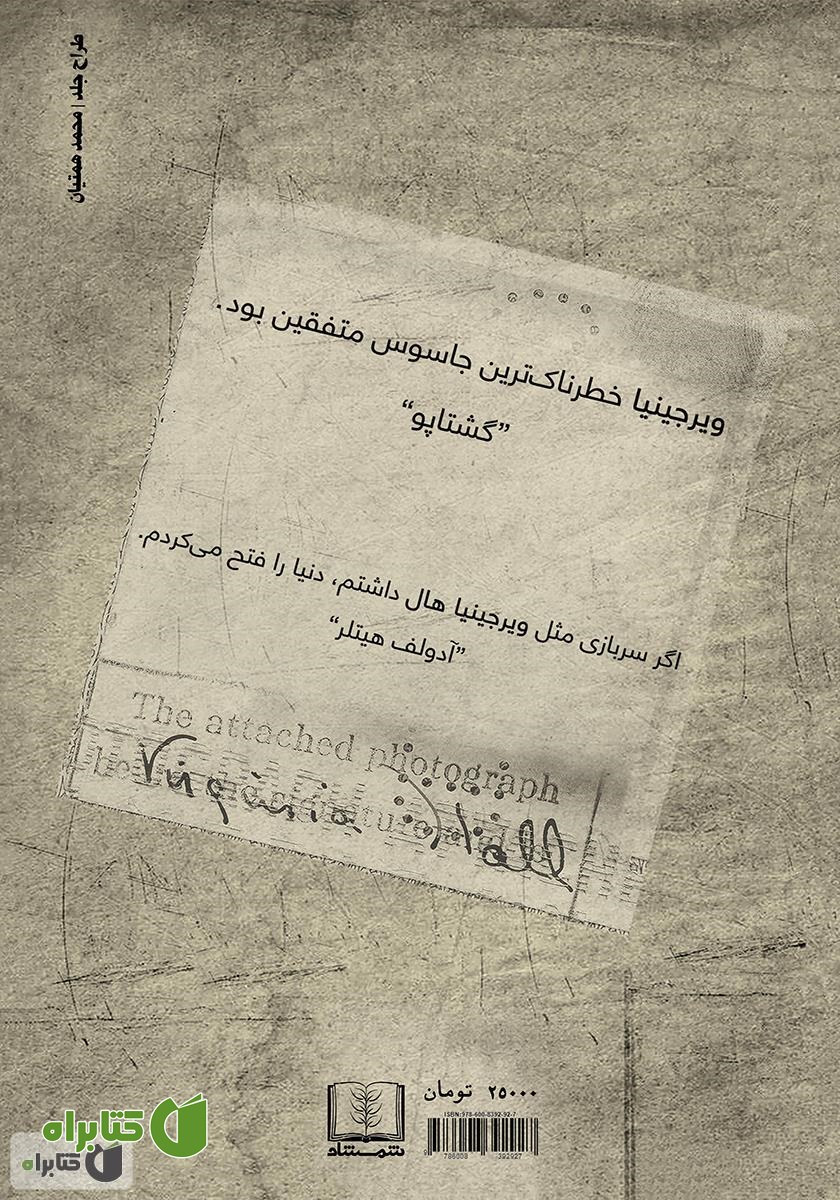 طراح جلد | محمد همتیان
ویرجینیا خطرناک‌ترین جاسوس متفقین بود.
”گشتاپو“
اگر سربازی مثل ویرجینیا هال داشتم، دنیا را فتح می‌کردم.
”آدولف هیتلر“
The attached photograph
Virginia Hall
۲۵۰۰۰ تومان
ISBN: 978-600-8392-92-7
9 786008 392927
شمشاد
کتابراه
کتابراه